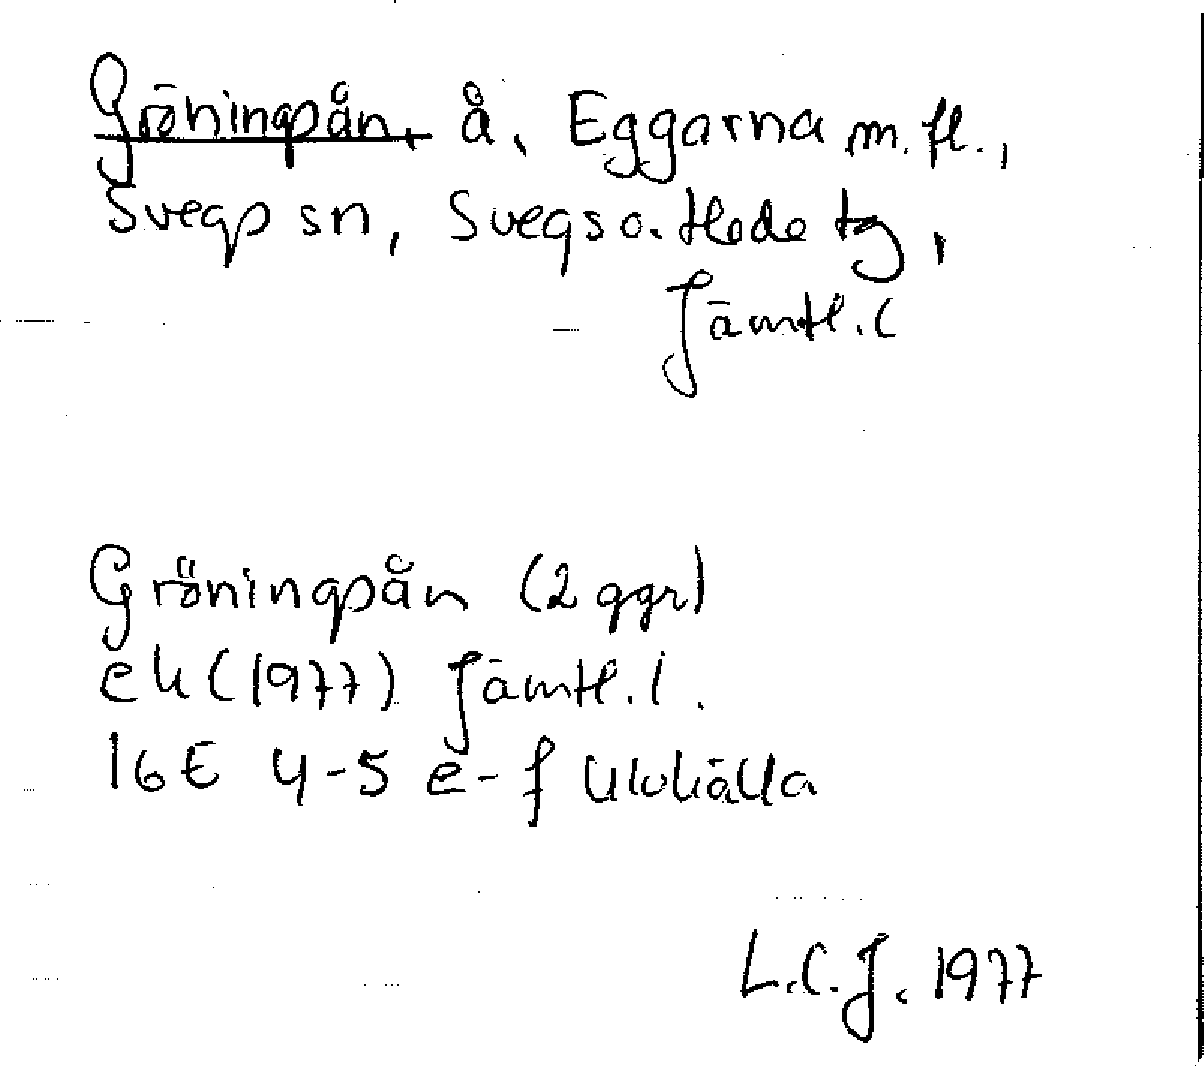 Gröningsån, å, Eggarna m. fl.,
Svegs sn, Svegs o. Hede tg,
Jämtl. l
Gröningsån (2 ggr)
ek (1977) Jämtl. l.
16E 4-5 e-f Ulvkälla
L.C.J. 1977